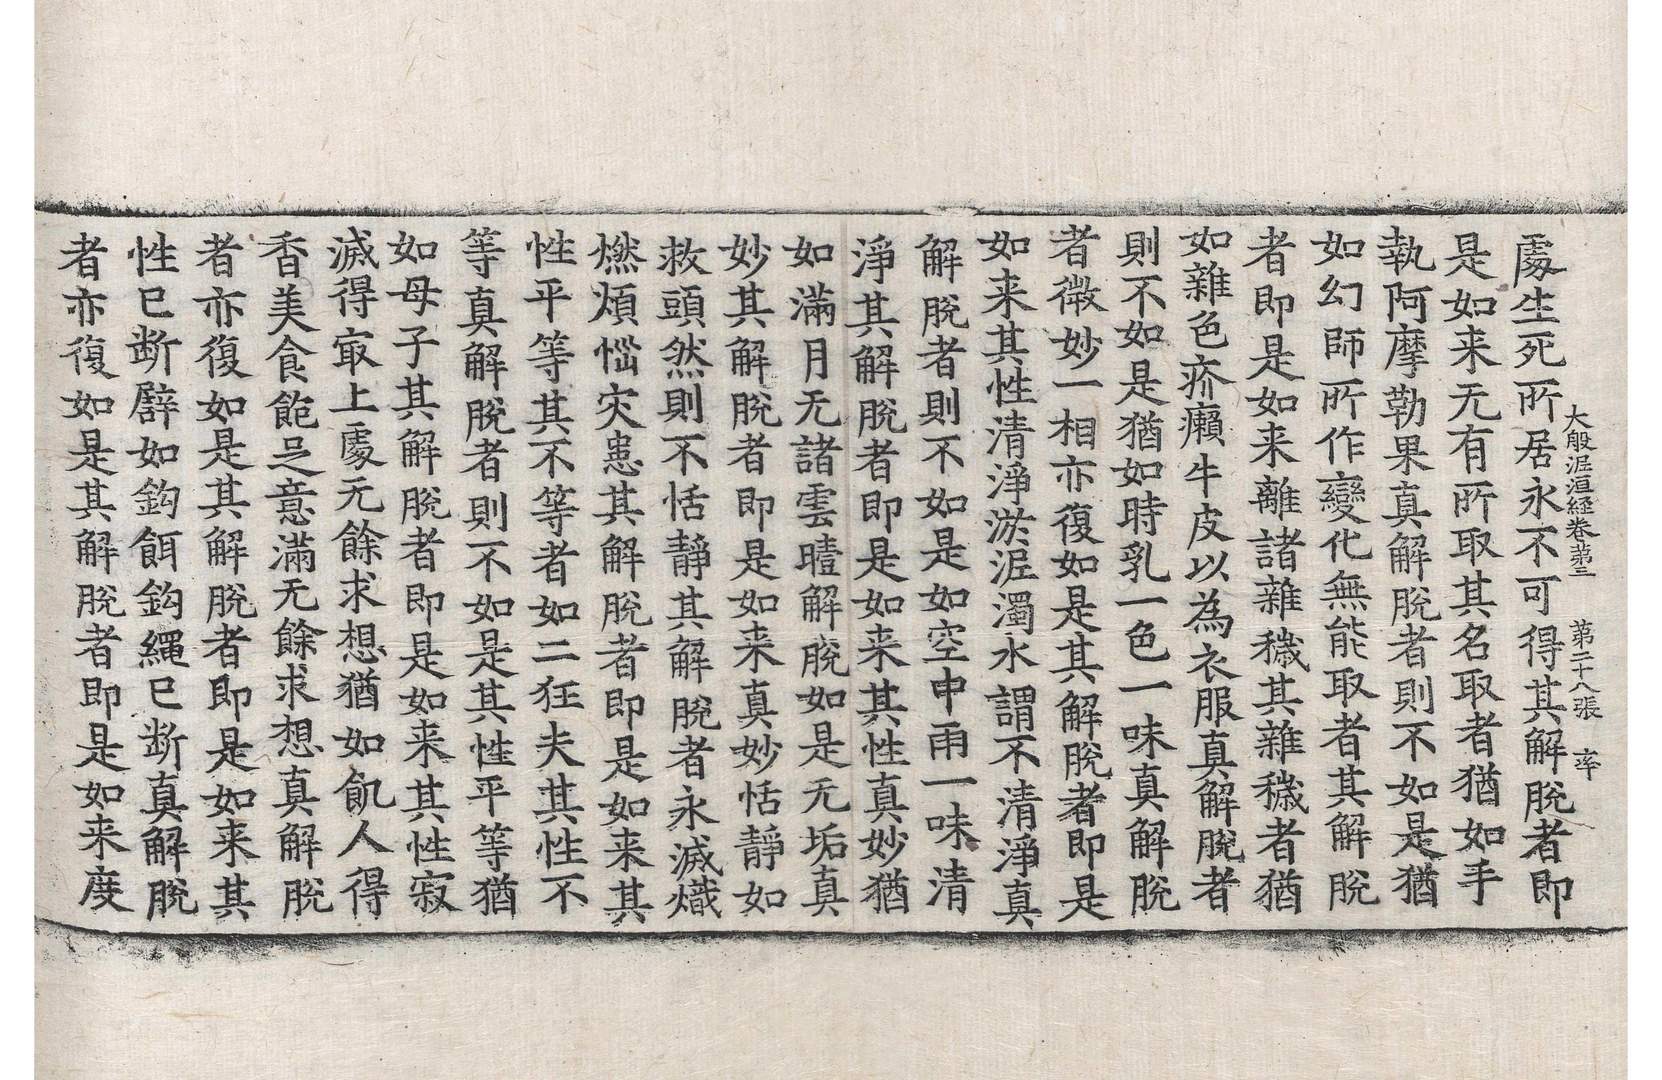 大般泥洹経卷第三　第二十八張　率
處生死所居永不可得其解脫者即
是如来无有所取其名取者猶如手
執阿摩勒果真解脫者則不如是猶
如幻師所作變化無能取者其解脫
者即是如来離諸雜穢其雜穢者猶
如雜色疥癩牛皮以為衣服真解脫者
則不如是猶如時乳一色一味真解脫
者微妙一相亦復如是其解脫者即是
如来其性清淨淤泥濁水謂不清淨真
解脫者則不如是如空中雨一味清
淨其解脫者即是如来其性真妙猶
如滿月无諸雲曀解脫如是无垢真
妙其解脫者即是如来真妙恬靜如
救頭然則不恬靜其解脫者永滅熾
燃煩惱灾患其解脫者即是如来其
性平等其不等者如二狂夫其性不
等真解脫者則不如是其性平等猶
如母子其解脫者即是如来其性寂
滅得㝡上處无餘求想猶如飢人得
香美食飽足意滿无餘求想真解脫
者亦復如是其解脫者即是如来其
性已断譬如鈎餌鈎繩已断真解脫
者亦復如是其解脫者即是如来度